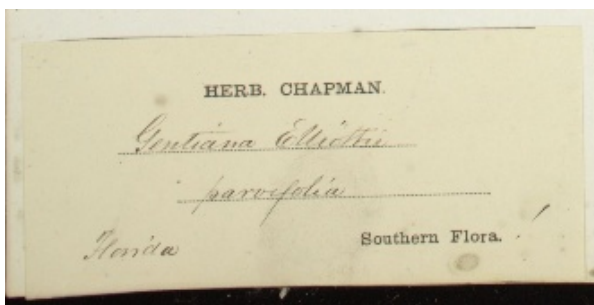 HERB. CHAPMAN.
Gentiana Elliottii
parvifolia
Florida
Southern Flora.